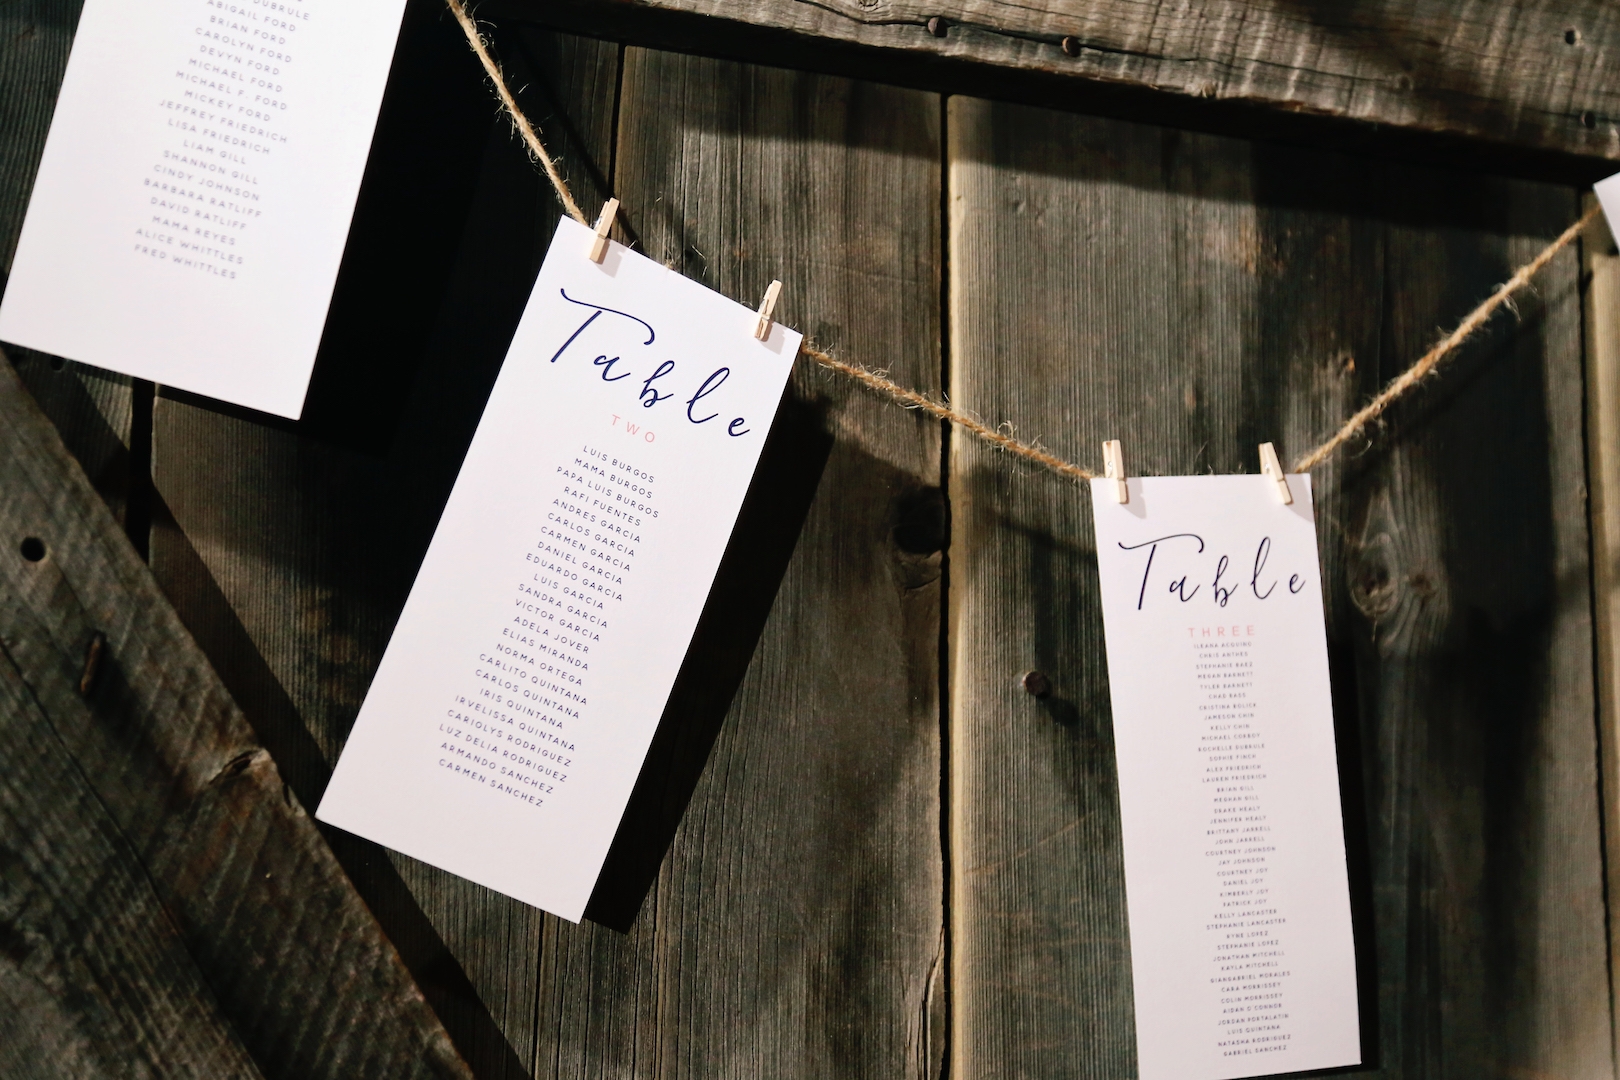 DUBRULE
ABIGAIL FORD
BRIAN FORD
CAROLYN FORD
DEVYN FORD
MICHAEL FORD
MICHAEL F. FORD
MICKEY FORD
JEFFREY FRIEDRICH
LISA FRIEDRICH
LIAM GILL
SHANNON GILL
CINDY JOHNSON
BARBARA RATLIFF
DAVID RATLIFF
MAMA REYES
ALICE WHITTLES
FRED WHITTLES
Table
TWO
LUIS BURGOS
MAMA BURGOS
PAPA LUIS BURGOS
RAFI FUENTES
ANDRES GARCIA
CARLOS GARCIA
CARMEN GARCIA
DANIEL GARCIA
EDUARDO GARCIA
LUIS GARCIA
SANDRA GARCIA
VICTOR GARCIA
ADELA JOVER
ELIAS MIRANDA
NORMA ORTEGA
CARLITO QUINTANA
CARLOS QUINTANA
IRIS QUINTANA
IRVELISSA QUINTANA
CARIOLYS RODRIGUEZ
LUZ DELIA RODRIGUEZ
ARMANDO SANCHEZ
CARMEN SANCHEZ
Table
THREE
ILEANA ACQUINO
CHRIS ANTHES
STEPHANIE BAEZ
MEGAN BARNETT
TYLER BARNETT
CHAZ BASS
CRISTINA BOLICK
JAMESON CHIN
KELLY CHIN
MICHAEL CONROY
ROCHELLE DUBRULE
SOPHIE FINCH
ALEX FRIEDRICH
LAUREN FRIEDRICH
BRIAN GILL
MEGHAN GILL
DRAKE HEALY
JENNIFER HEALY
BRITTANY JARRELL
JOHN JARRELL
COURTNEY JOHNSON
JAY JOHNSON
COURTNEY JOY
DANIEL JOY
KIMBERLY JOY
PATRICK JOY
KELLY LANCASTER
STEPHANIE LANCASTER
KYNE LOPEZ
STEPHANIE LOPEZ
JONATHAN MITCHELL
KAYLA MITCHELL
GIANGABRIEL MORALES
CARA MORRISSEY
COLIN MORRISSEY
AIDAN O'CONNOR
JORDAN PORTALATIN
LUIS QUINTANA
NATASHA RODRIGUEZ
GABRIEL SANCHEZ